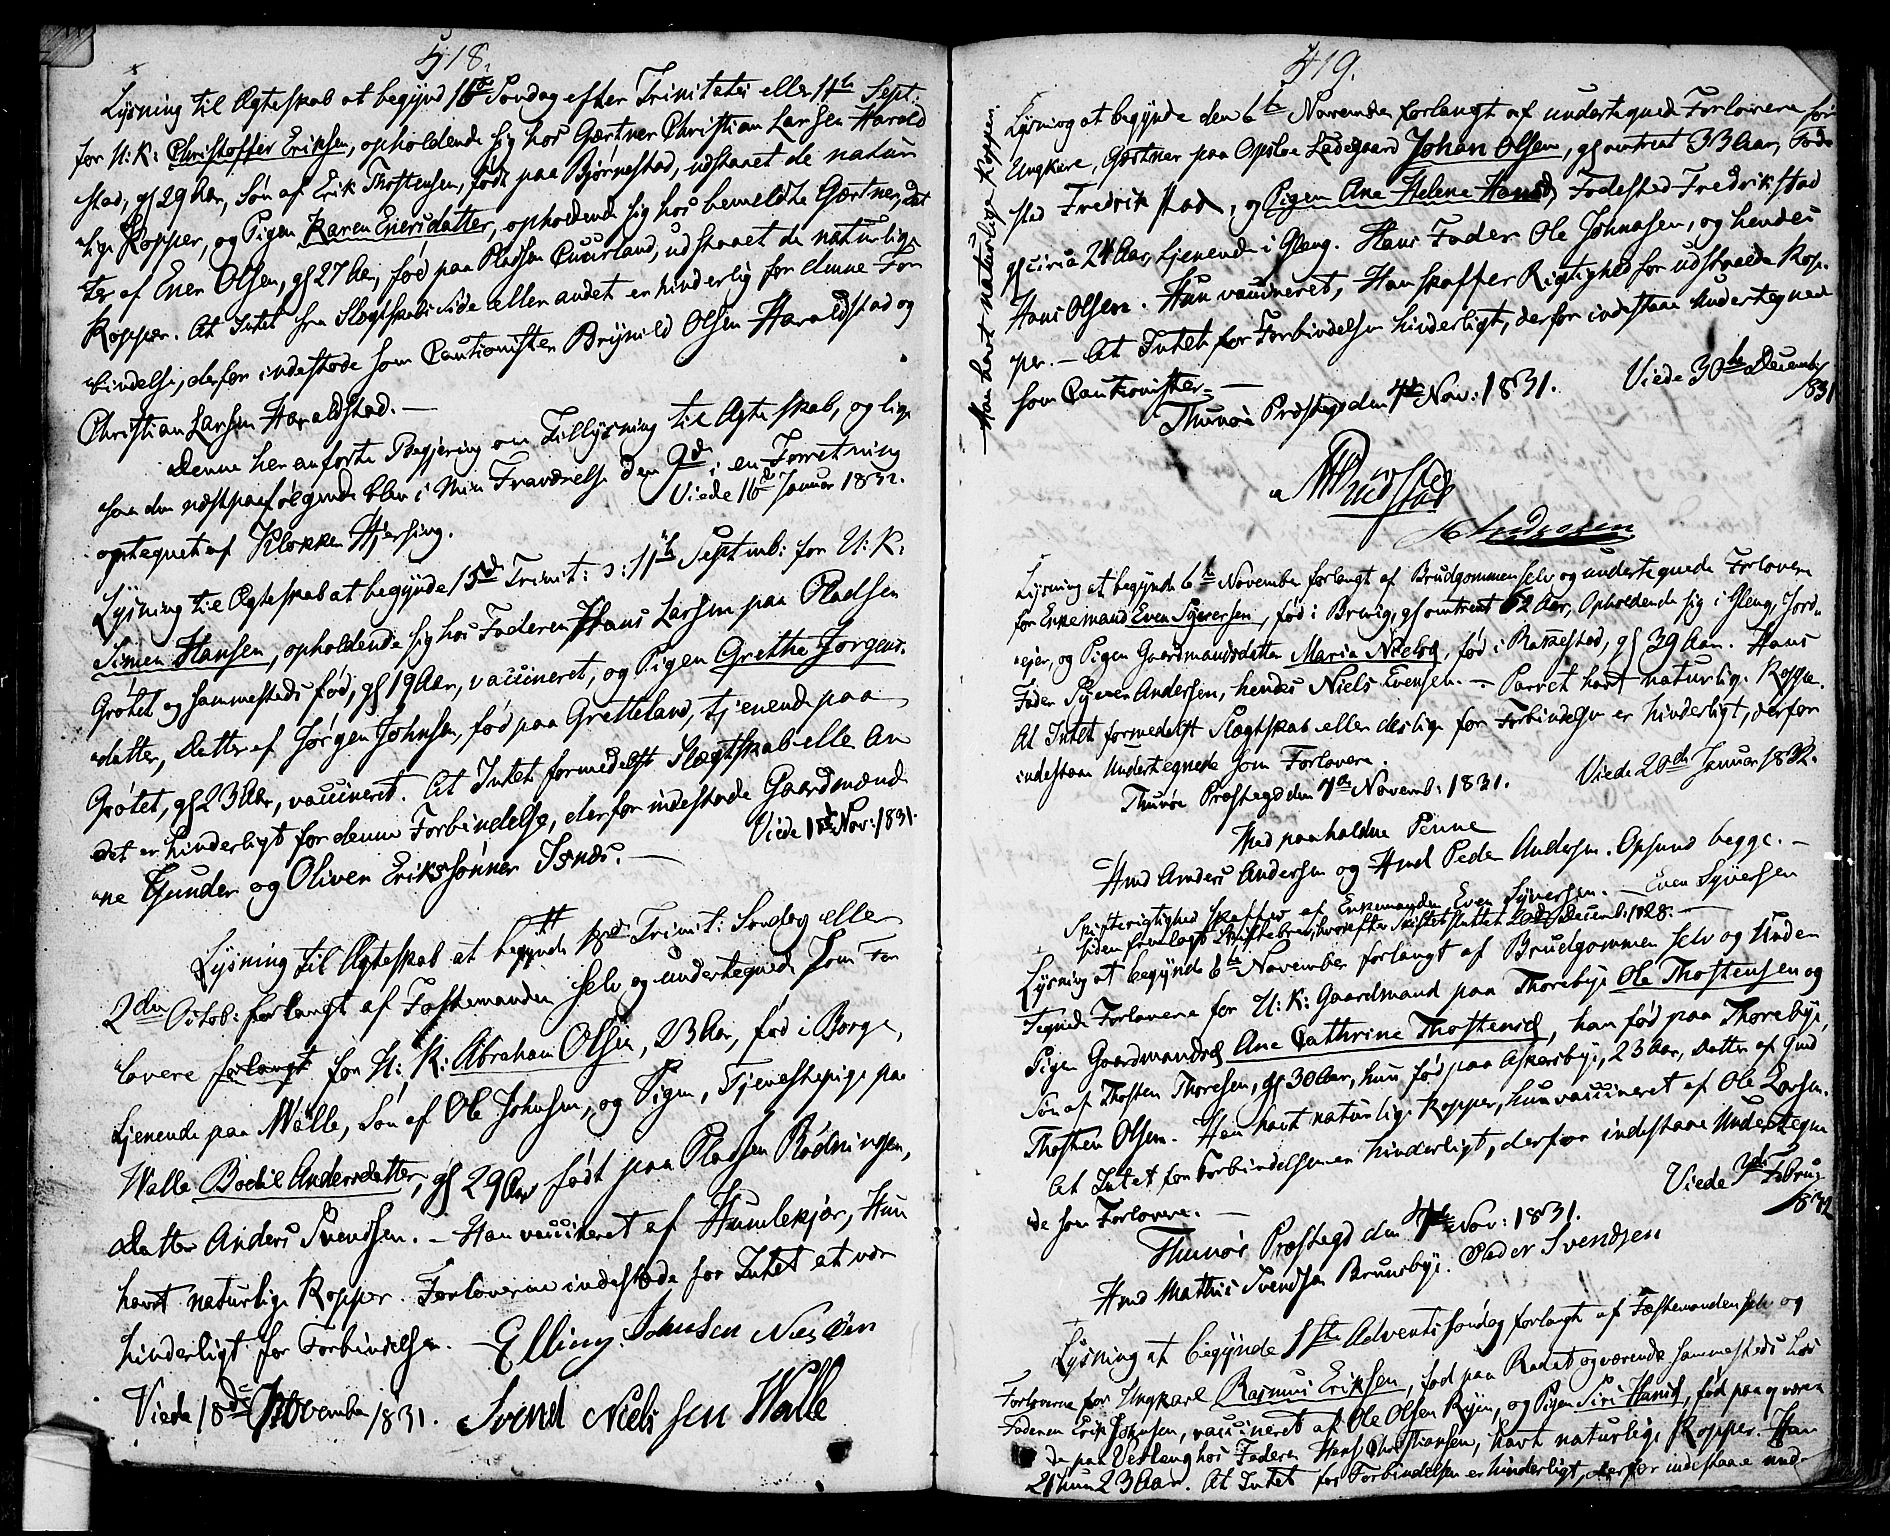 518.
Lysning til Ægteskab at begynde 16de Søndag efter Trinitatis eller 11te Sept.
for U: K: Christoffer Eriksen, opholdende sig hos Gartner Christian Larsen Harald
stad, gl 29 Aar, Søn af Erik Thostensen, født paa Bjørnestad, udstaaet de natur
lige Kopper, og Pigen Karen Enersdatter, opholdende sig hos bemeldte Gartner, Dat
ter af Ener Olsen, gl 27 Aar, fød paa Pladsen Cuurland, udstaaet de naturlige
Kopper. At Intet fra Slægtskabs Side eller andet er hinderlig for denne For
bindelse, derfor indestode som Cautionister Brynild Olsen Haraldstad og
Christian Larsen Haraldstad. —
Denne her anførte Begjering om Tillysning til Ægteskab, og lige
saa den næstpaafølgende blev i Min Fraværelse den 9de i en Forretning
optegnet af Klokker Hjersing. Viede 16de Januar 1832.
Lysning til Ægteskab at begynde 15de Trinit: ɔ: 11te Septmb: for U: K:
Simen Hansen, opholdende sig hos Faderen Hans Larsen paa Pladsen
Grøtet og sammesteds fød, gl 19 Aar, vaccineret, og Pigen Grethe Jørgens-
datter, Datter af Jørgen Johnsen, fød paa Gretteland, tjenende paa
Grøtet, gl 23 Aar, vaccineret. At Intet formedelst Slægtskab eller An
det er hinderligt for denne Forbindelse, derfor indestode Gaardmænd
ne Gunder og Oliver Erikssønner Isnæs. — Viede 18de Nov: 1831.
Lysning til Ægteskab at begynde 18de Trinit: Søndag eller
2den Octob: forlangt af Fæstemanden selv og undertegnede som For
lovere forlangt for U: K: Abraham Olsen, 23 Aar, fød i Borge,
tjenende paa Walle, Søn af Ole Johnsen, og Pigen, Tjenestepige paa
Walle Bodil Andersdatter, gl 29 Aar født paa Pladsen Rødningen,
Datter Anders Svendsen. — Han vaccineret af Humlekjær, Hun
havt naturlige Kopper. Forloverne indestode for Intet at være
hinderligt for Forbindelsen. — Elling Johnsen Nes Øen
Viede 18de November 1831. Svend Nielssen Walle
519.
Lysning at begynde den 6te November forlangt af undertegnede Forlovere for
Ungkarl, Gartner paa Opsloe Ladegaard Johan Olsen, gl omtrent 33 Aar, Føde
sted Fredrikstad, og Pigen Ane Helene Hansd, Fødested Fredrikstad
gl circa 24 Aar, tjenende i Gleng. Hans Fader Ole Johnasen, og hendes
Hans Olsen. Hun vaccineret, Han skaffer Rigtighed for udstaaede Kop-
per. — At Intet for Forbindelsen hinderligt, derfor indestaae Undertegnede
som Cautionister. —
Thunøe Præstegd den 4de Nov: 1831. Viede 30te Decembr 1831
— Han havt naturlige Kopper.
Lysning at begynde 6te November forlangt af Brudgommen selv og undertegnede Forlovere
for Enkemand Even Syversen, fød i Brevig, gl omtrent 62 Aar, Opholdende sig i Gleng, Jord-
ejer, og Pigen Gaardmandsdatter Maria Nielsd, fød i Rakkestad, gl 39 Aar. Hans
Fader Syver Andersen, hendes Niels Evensen. — Parret havt naturlige Kopper.
At Intet formedelst Slægtskab eller deslige for Forbindelsen er hinderligt, derfor
indestaae Undertegnede som Forlovere.
Thunøe Præstegd den 7de Novemb: 1831. Viede 20de Januar 1832.
Med paaholdne Penne
Hmd Anders Andersen og Hmd Peder Andersen. Opsund begge. —
Skifterigtighed skaffes af Enkemanden Even Syversen. — Even Syversen
siden fremlagt Skiftebrev, hvorefter Skiftet sluttet 20de Decemb: 1828. —
Lysning at begynde 6te November forlangt af Brudgommen selv og Under
tegnede Forlovere for U: K: Gaardmand paa Thorebye Ole Thostensen og
Pigen Gaardmandsd Ane Cathrine Thostensd, han fød paa Thorebye,
Søn af Thosten Thoresen, gl 30 Aar, hun fød paa Askersbye, 23 Aar, Datter af Gmd
Thosten Olsen. Han havt naturlige Kopper, hun vaccineret af Ole Larsen.
At Intet for Forbindelsen er hinderligt, derfor indestaae Undertegne
de som Forlovere. — Viede 3de Februar 1832
Thunøe Præstegd den 4de Nov: 1831.
Hmd Mathis Svendsen Brunsbye. Peder Svendsen
Lysning at begynde 1ste Advents Søndag forlangt af Fæstemanden selv og
Forloverne for Ungkarl Rasmus Eriksen, fød paa Rødet og værende sammesteds hos
Faderen Erik Johnsen, vaccineret af Ole Olsen Ryen, og Pigen Siri Hansd, fød paa og væren
de paa Vesteng hos Faderen Hans Christiansen, havt naturlige Kopper. Han
21 hun 23 Aar. At Intet for Forbindelsen er hinderligt, derfor indestaae unde